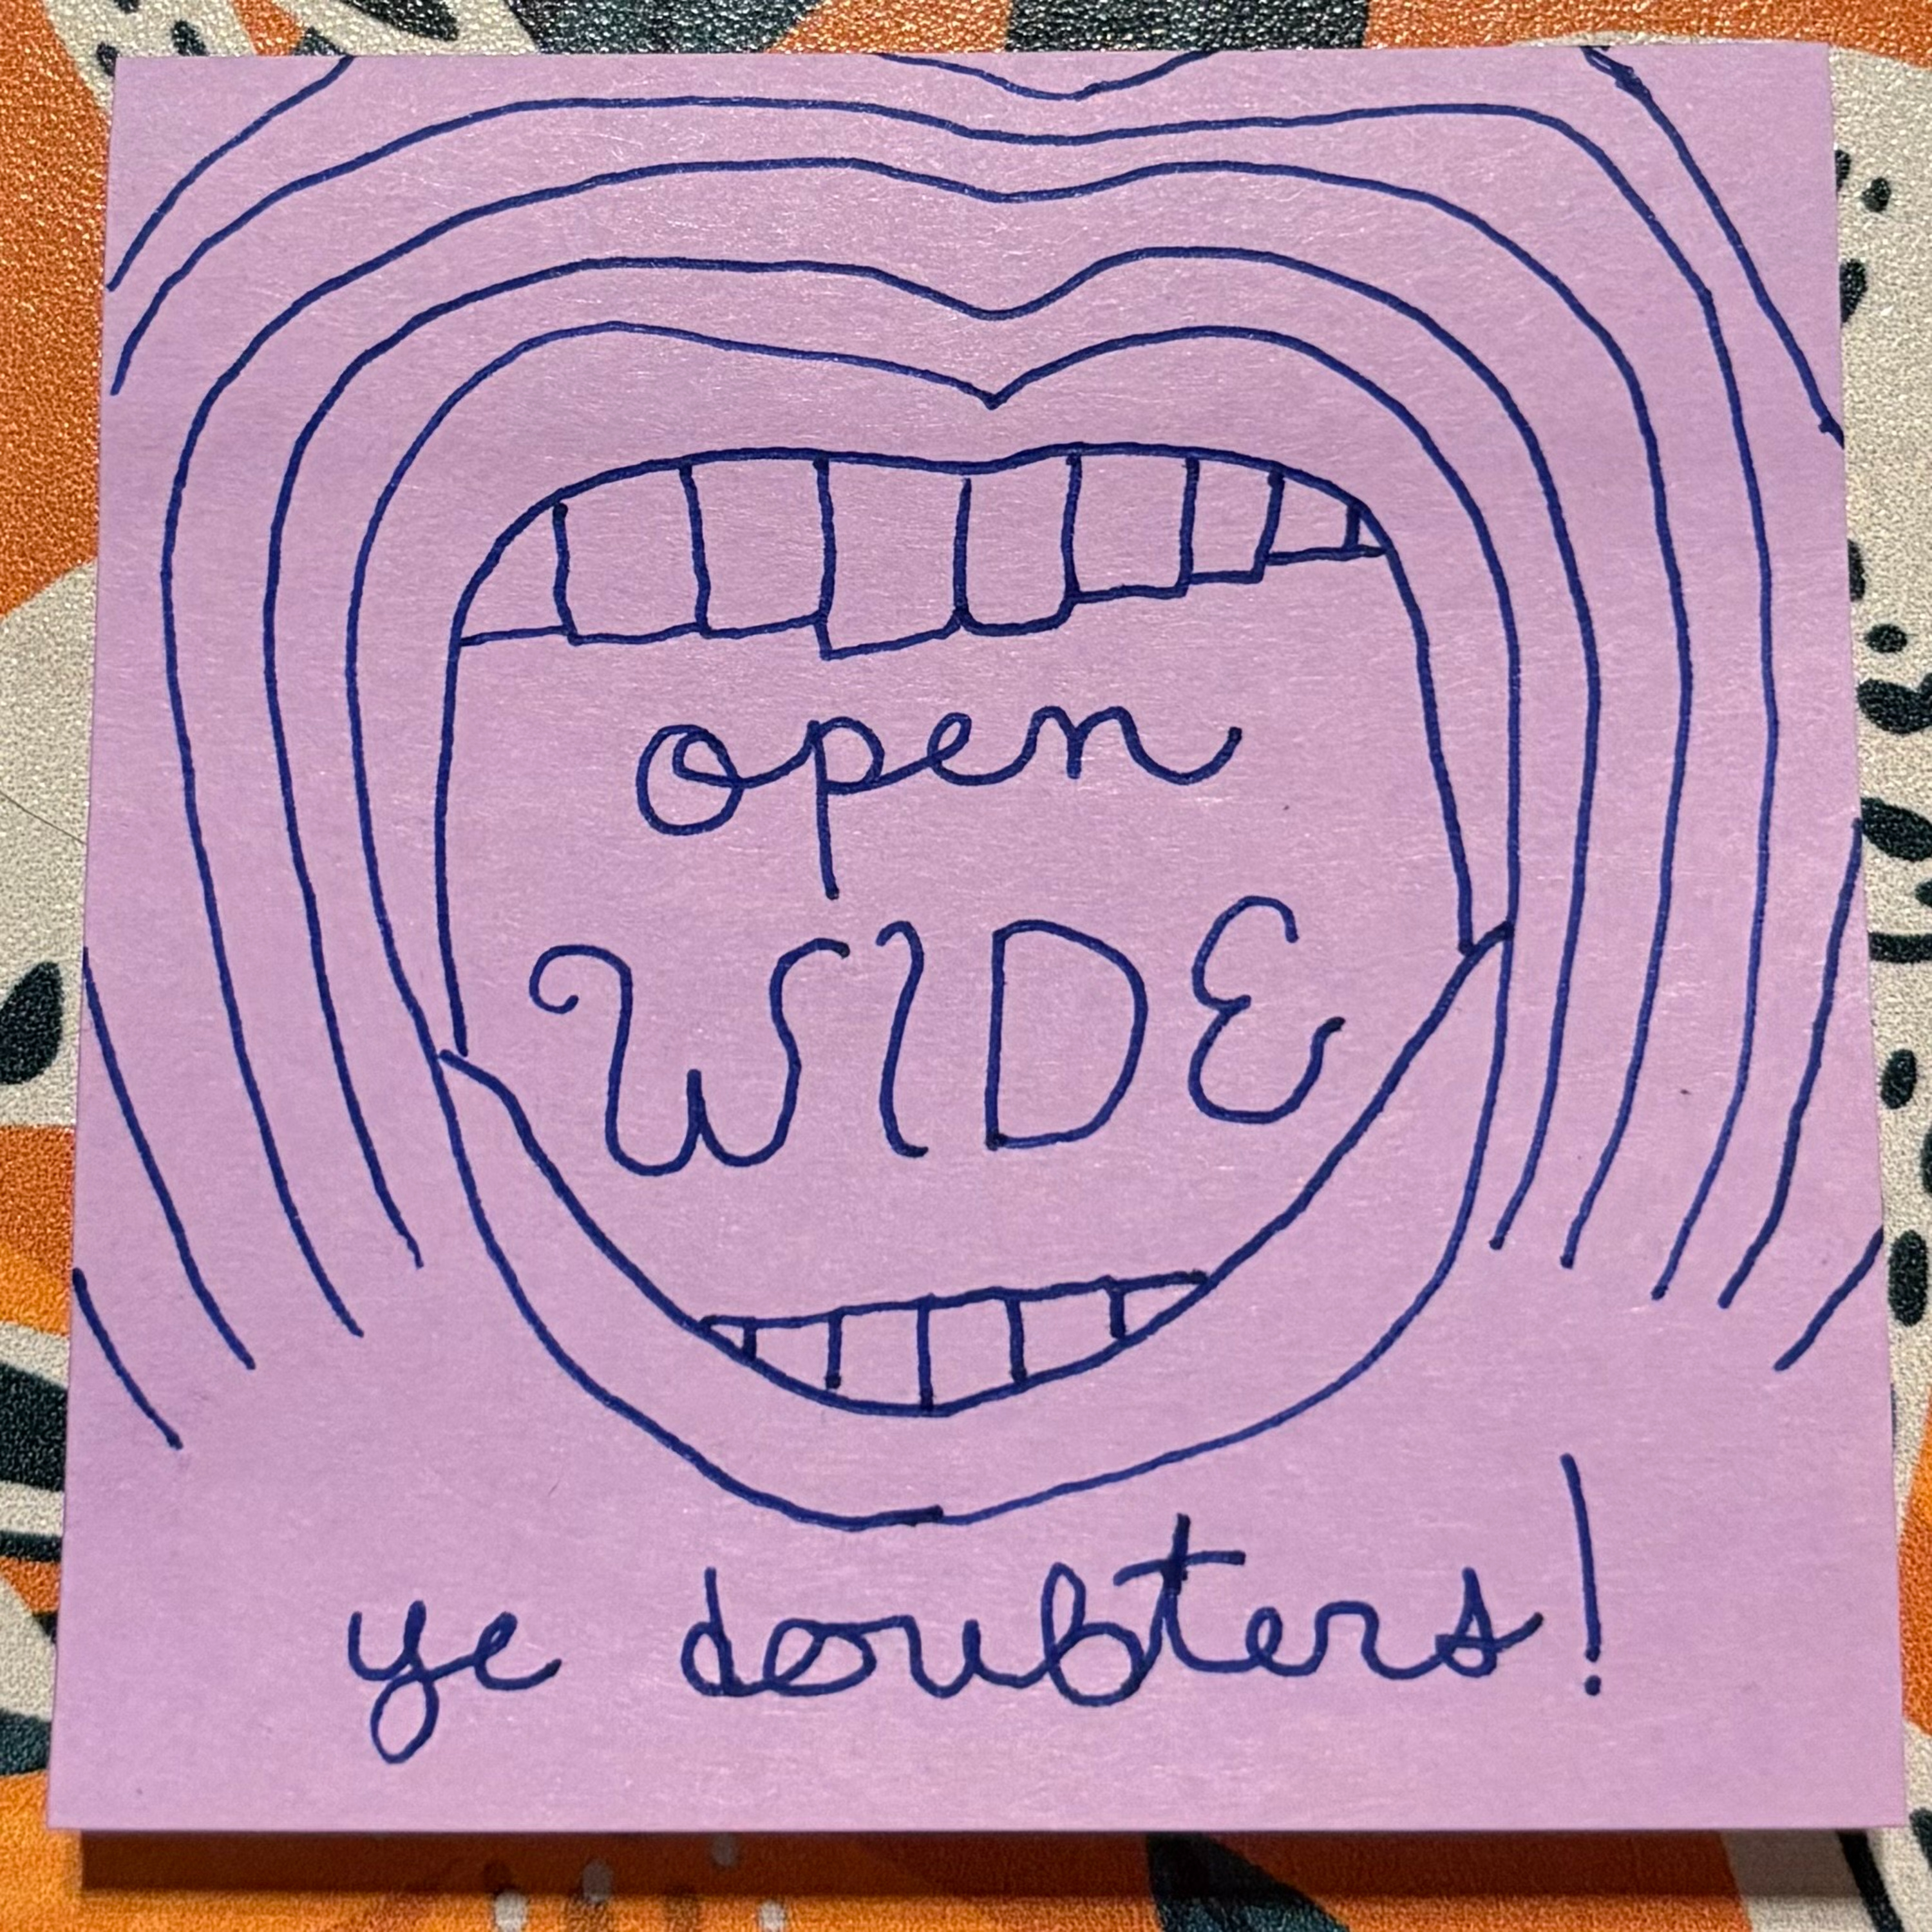 open
WIDE
ye doubters!